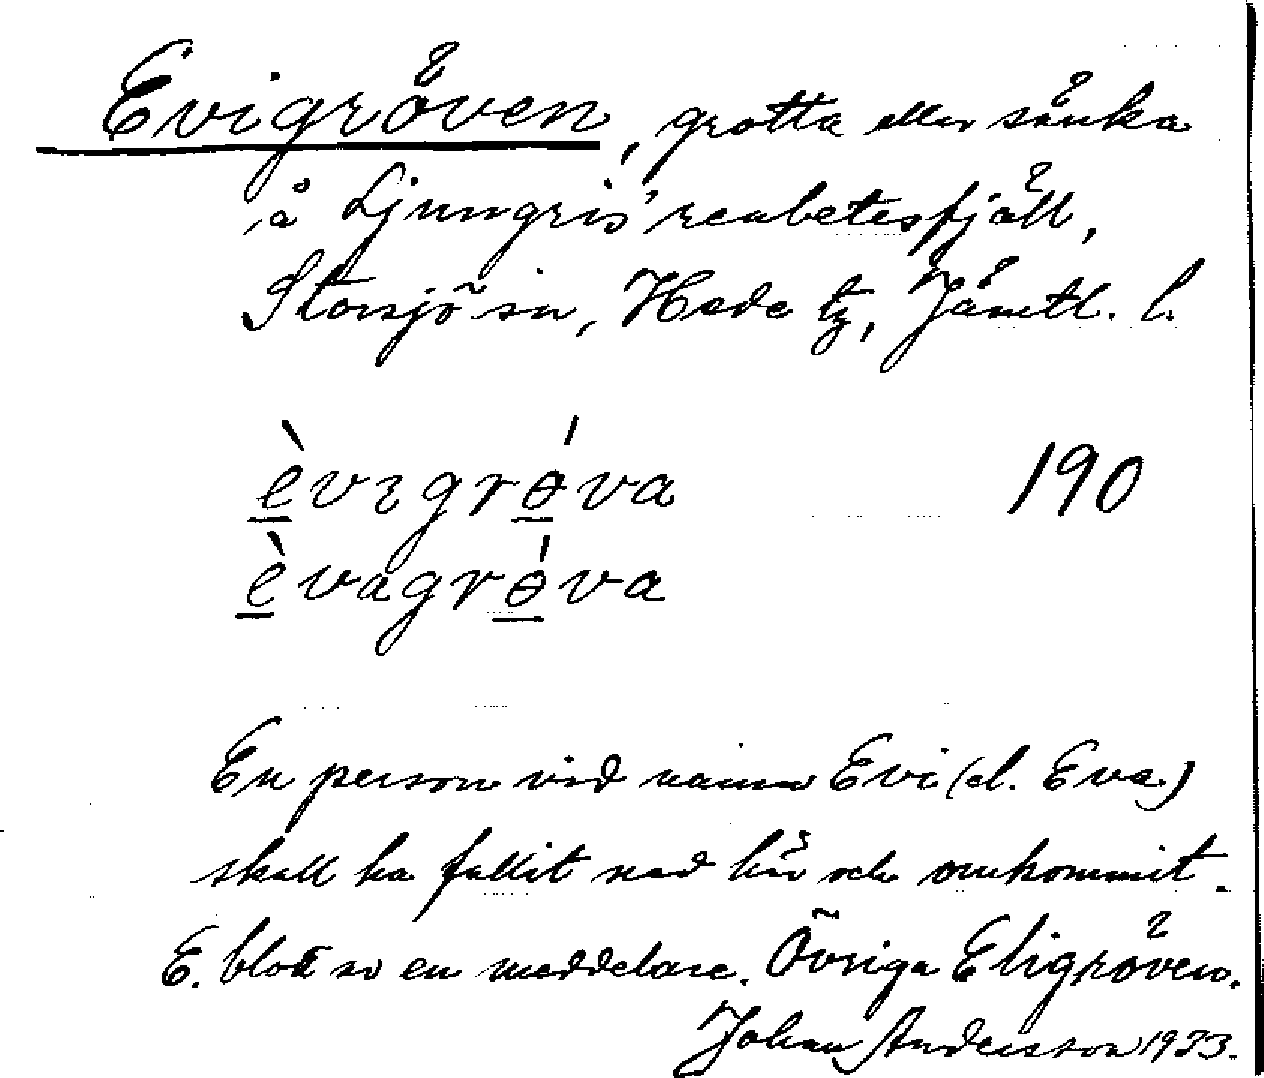 Evigröven, grotta eller sänka
å Ljungris' renbetesfjäll,
Storsjö sn, Hede tg, Jämtl. l.
è̱vıgrɵ̱́va
190
è̱vagrɵ̱́va
En person vid namn Evi (el. Eva)
skall ha fallit ned här och omkommit.
E. blott av en meddelare. Övriga Eligröven.
Johan Andersson 1933.